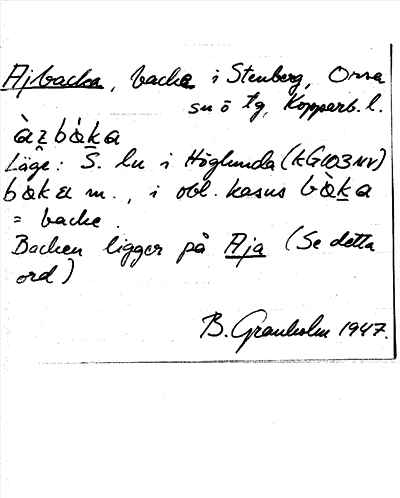 Ajbacka, backe i Stenberg, Orsa
sn ö tg, Kopparb. l.
àz̯bàk̠a
Läge: S. lu i Höglunda (KG103NV)
bak a m., i obl. kasus bàk̠a
= backe.
Backen ligger på Aja (Se detta
ord)
B. Granholm 1947.